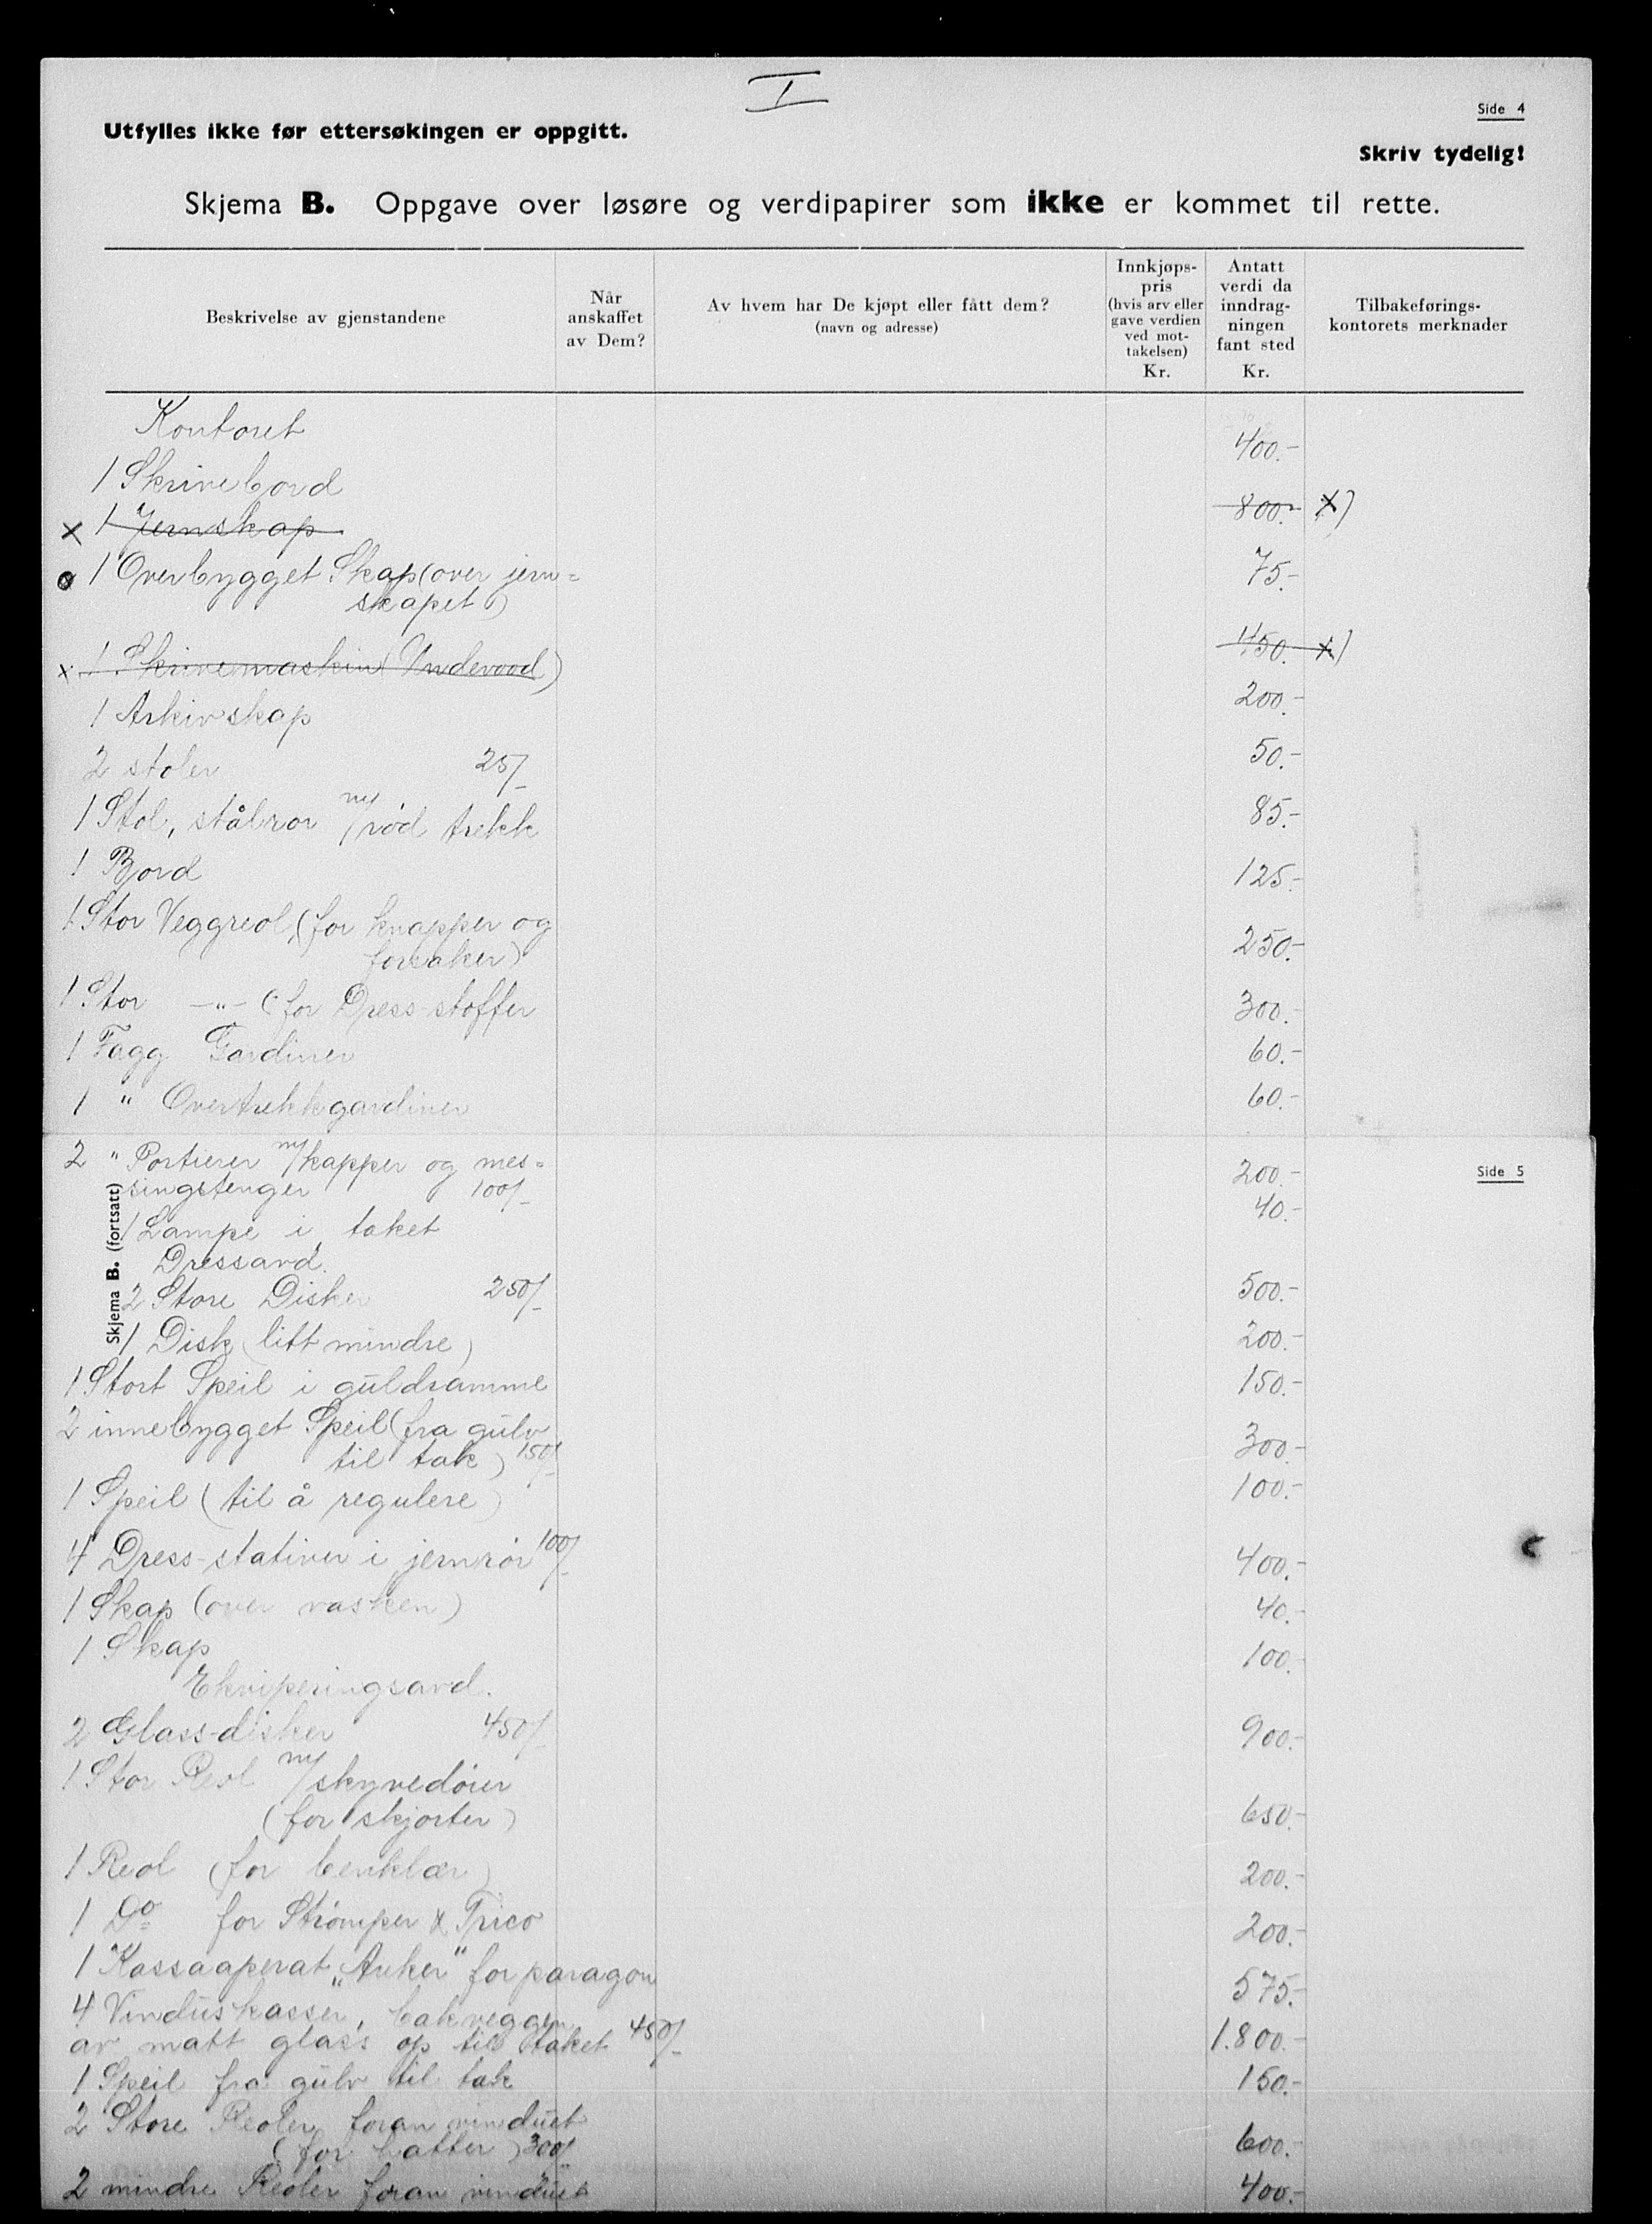 I
Side 4
Utfylles ikke før ettersøkingen er oppgitt.
Skriv tydelig!
Skjema B. Oppgave over løsøre og verdipapirer som ikke er kommet til rette.
Beskrivelse av gjenstandene
Når
anskaffet
av Dem?
Av hvem har De kjøpt eller fått dem?
(navn og adresse)
Innkjøps-
pris
(hvis arv eller
gave verdien
ved mot-
takelsen)
Kr.
Antatt
verdi da
inndrag-
ningen
fant sted
Kr.
Tilbakeførings-
kontorets merknader
Kontoret
1 Skrivebord 400.-
x 1 Jernskap 800.- x)
o 1 Overbygget Skap (over jern= 75.-
skapet)
x 1 Skrivemaskin (Undevood) 450.- x)
1 Arkivskap 200.-
2 stoler 25/- 50.-
1 Stol, stålrør m/rød trekk 85.-
1 Bord 125.-
1 Stor Veggreol, (for knapper og
forsaker) 250.-
1 Stor -"- (for Dress-stoffer 300.-
1 Fagg Gardiner 60.-
1 " Overtrekkgardiner 60.-
2 " Portierer m/kapper og mes= 200.-
singstenger 100/-
Side 5
Skjema B. (fortsatt)
1 Lampe i taket 40.-
Dressavd.
2 Store Disker 250/- 500.-
1 Disk (litt mindre) 200.-
1 Stort Speil i guldramme 150.-
2 innebygget Speil (fra gulv
til tak) 150/- 300.-
1 Speil (til å regulere) 100.-
4 Dress-stativer i jernrør 100/- 400.-
1 Skap (over vasken) 40.-
1 Skap 100.-
Ekviperingsavd.
2 Glass-disker 450/- 900.-
1 Stor Reol m/skyvedører
(for skjorter) 650.-
1 Reol (for benklær) 200.-
1 Do for Strømper & Trico 200.-
1 Kassaaperat "Anker" for paragon 575.-
4 Vinduskasser, bakveggen
av matt glass op til taket 450/- 1.800.-
1 Speil fra gulv til tak 150.-
2 Store Reoler foran vinduet
(for hatter) 300/- 600.-
2 mindre Reoler foran vinduet 400.-